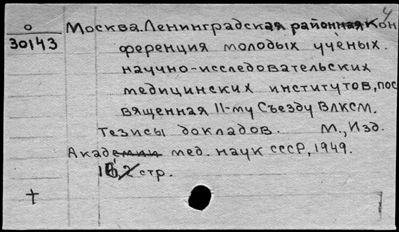 о Москва. Ленинградская районная кон
30143 ференция молодых ученых.
научно-исследовательских
медицинских институтов, пос
вященная 11-му Съезду ВЛКСМ.
Тезисы докладов. М., Изд.
Академии мед. наук СССР, 1949.
стр.